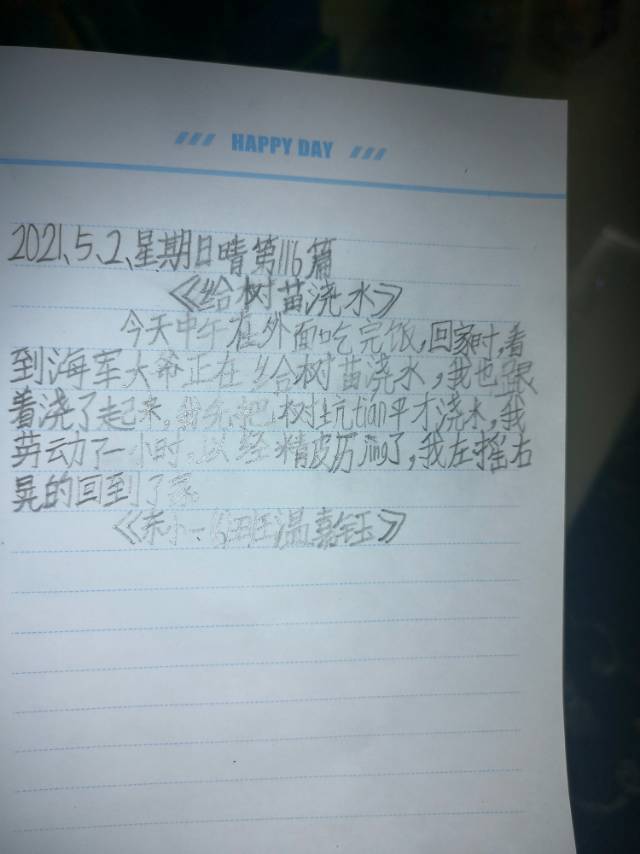 HAPPY DAY
2021、5、2、星期日晴第116篇
《给树苗浇水》
今天中午在外面吃完饭,回家时,看
到海军大爷正在给树苗浇水,我也跟
着浇了起来,我先把树坑tián平才浇水,我
劳动了一小时,以经精皮力jìng了,我左摇右
晃的回到了家。
《东小一、6班温嘉钰》